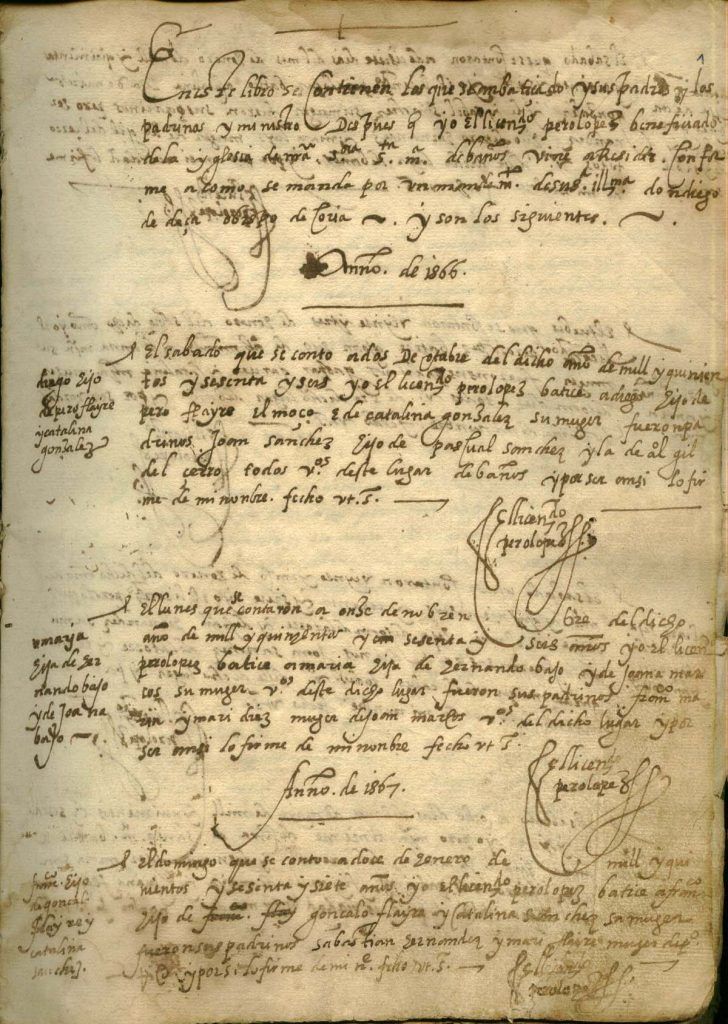 En este libro se contienen los que se an batiçado y sus padres y los
padrinos y ministro Despues q yo el licendo perolopez beneficiado
de la yglesia de nra sra sta mª de baños vine a Residir. Confor
me a como se manda por un mandamto de su sª. illma. don diego
de deça obispo de Coria ~. y son los siguientes. ~.
Anno. de 1866.
diego hijo
de pero flayre
y catalina
gonzalez
El sabado que se conto a dos De otubre del dicho año de mill y quinien
tos y sesenta y seis yo El licendo perolopez batice a diego hijo de
pero flayre el moço E de catalina gonzalez su muger fueron pa
drinos Joan sanchez hijo de pasqual sanchez y la de al gil
del cerro todos vºs deste lugar de baños y por ser ansi lo fir
me de mi nonbre. fecho vt. s.
el licendo
perolopez
maria
hija de her
nando bajo
y de Joana
bajo
El lunes que se contaron a onse de nobien bre del dicho
año de mill y quinientos y sesenta y seis años yo El licendo
perolopez batice a maria hija de hernando bajo y de Joana mar
cos su muger vºs deste dicho lugar fueron sus padrinos franco ma
rin y mari diez muger de joan marcos vºs del dicho lugar y por
ser ansi lo firme de mi nonbre fecho vt s.
el licendo
perolopez
Anno. de 1867.
franco. hijo
de goncalo
flayre y
catalina
sanchez.
El domingo que se conto a doce de henero de mill y qui
nientos y sesenta y siete años yo el licendo perolopez batice a franco
hijo de goncalo flayre y catalina sanchez su muger
fueron sus padrinos sabastian hernandez y mari flayre muger de po.
y por si lo firme de mi nº. fecho vt. s.
el licendo
perolopez